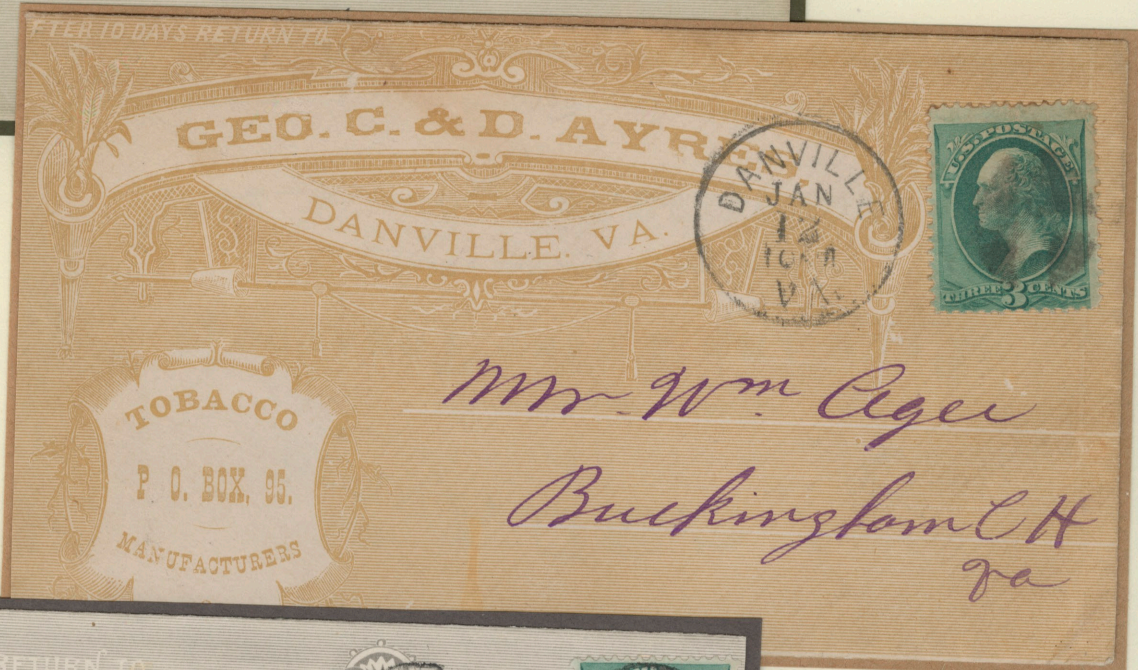 FTER 10 DAYS RETURN TO
GEO. C. & D. AYRES
DANVILLE. VA.
DANVILLE
JAN
12
VA.
U.S. POSTAGE
THREE 3 CENTS
TOBACCO
P. O. BOX. 95.
MANUFACTURERS
Mr. Wm Agee
Buckingham C H
Va
RETURN TO